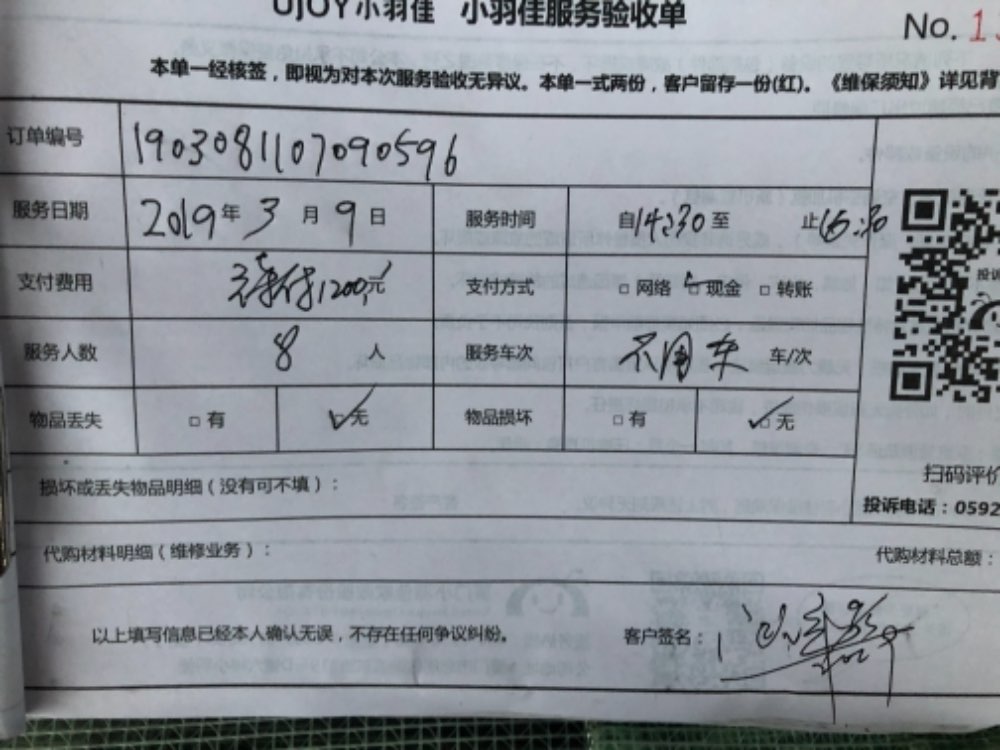 UJOY小羽佳 小羽佳服务验收单
No. 1
本单一经核签，即视为对本次服务验收无异议。本单一式两份，客户留存一份(红)。《维保须知》详见背
订单编号 1903081107090596
服务日期 2019年3月9日 服务时间 自14:30至 止16:30
支付费用 1200元 支付方式 □网络 □现金 □转账
服务人数 8人 服务车次 不用车 车/次
物品丢失 □有 ☑无 物品损坏 □有 ☑无
损坏或丢失物品明细（没有可不填）：
扫码评价
投诉电话：0592
代购材料明细（维修业务）：
代购材料总额：
以上填写信息已经本人确认无误，不存在任何争议纠纷。 客户签名：